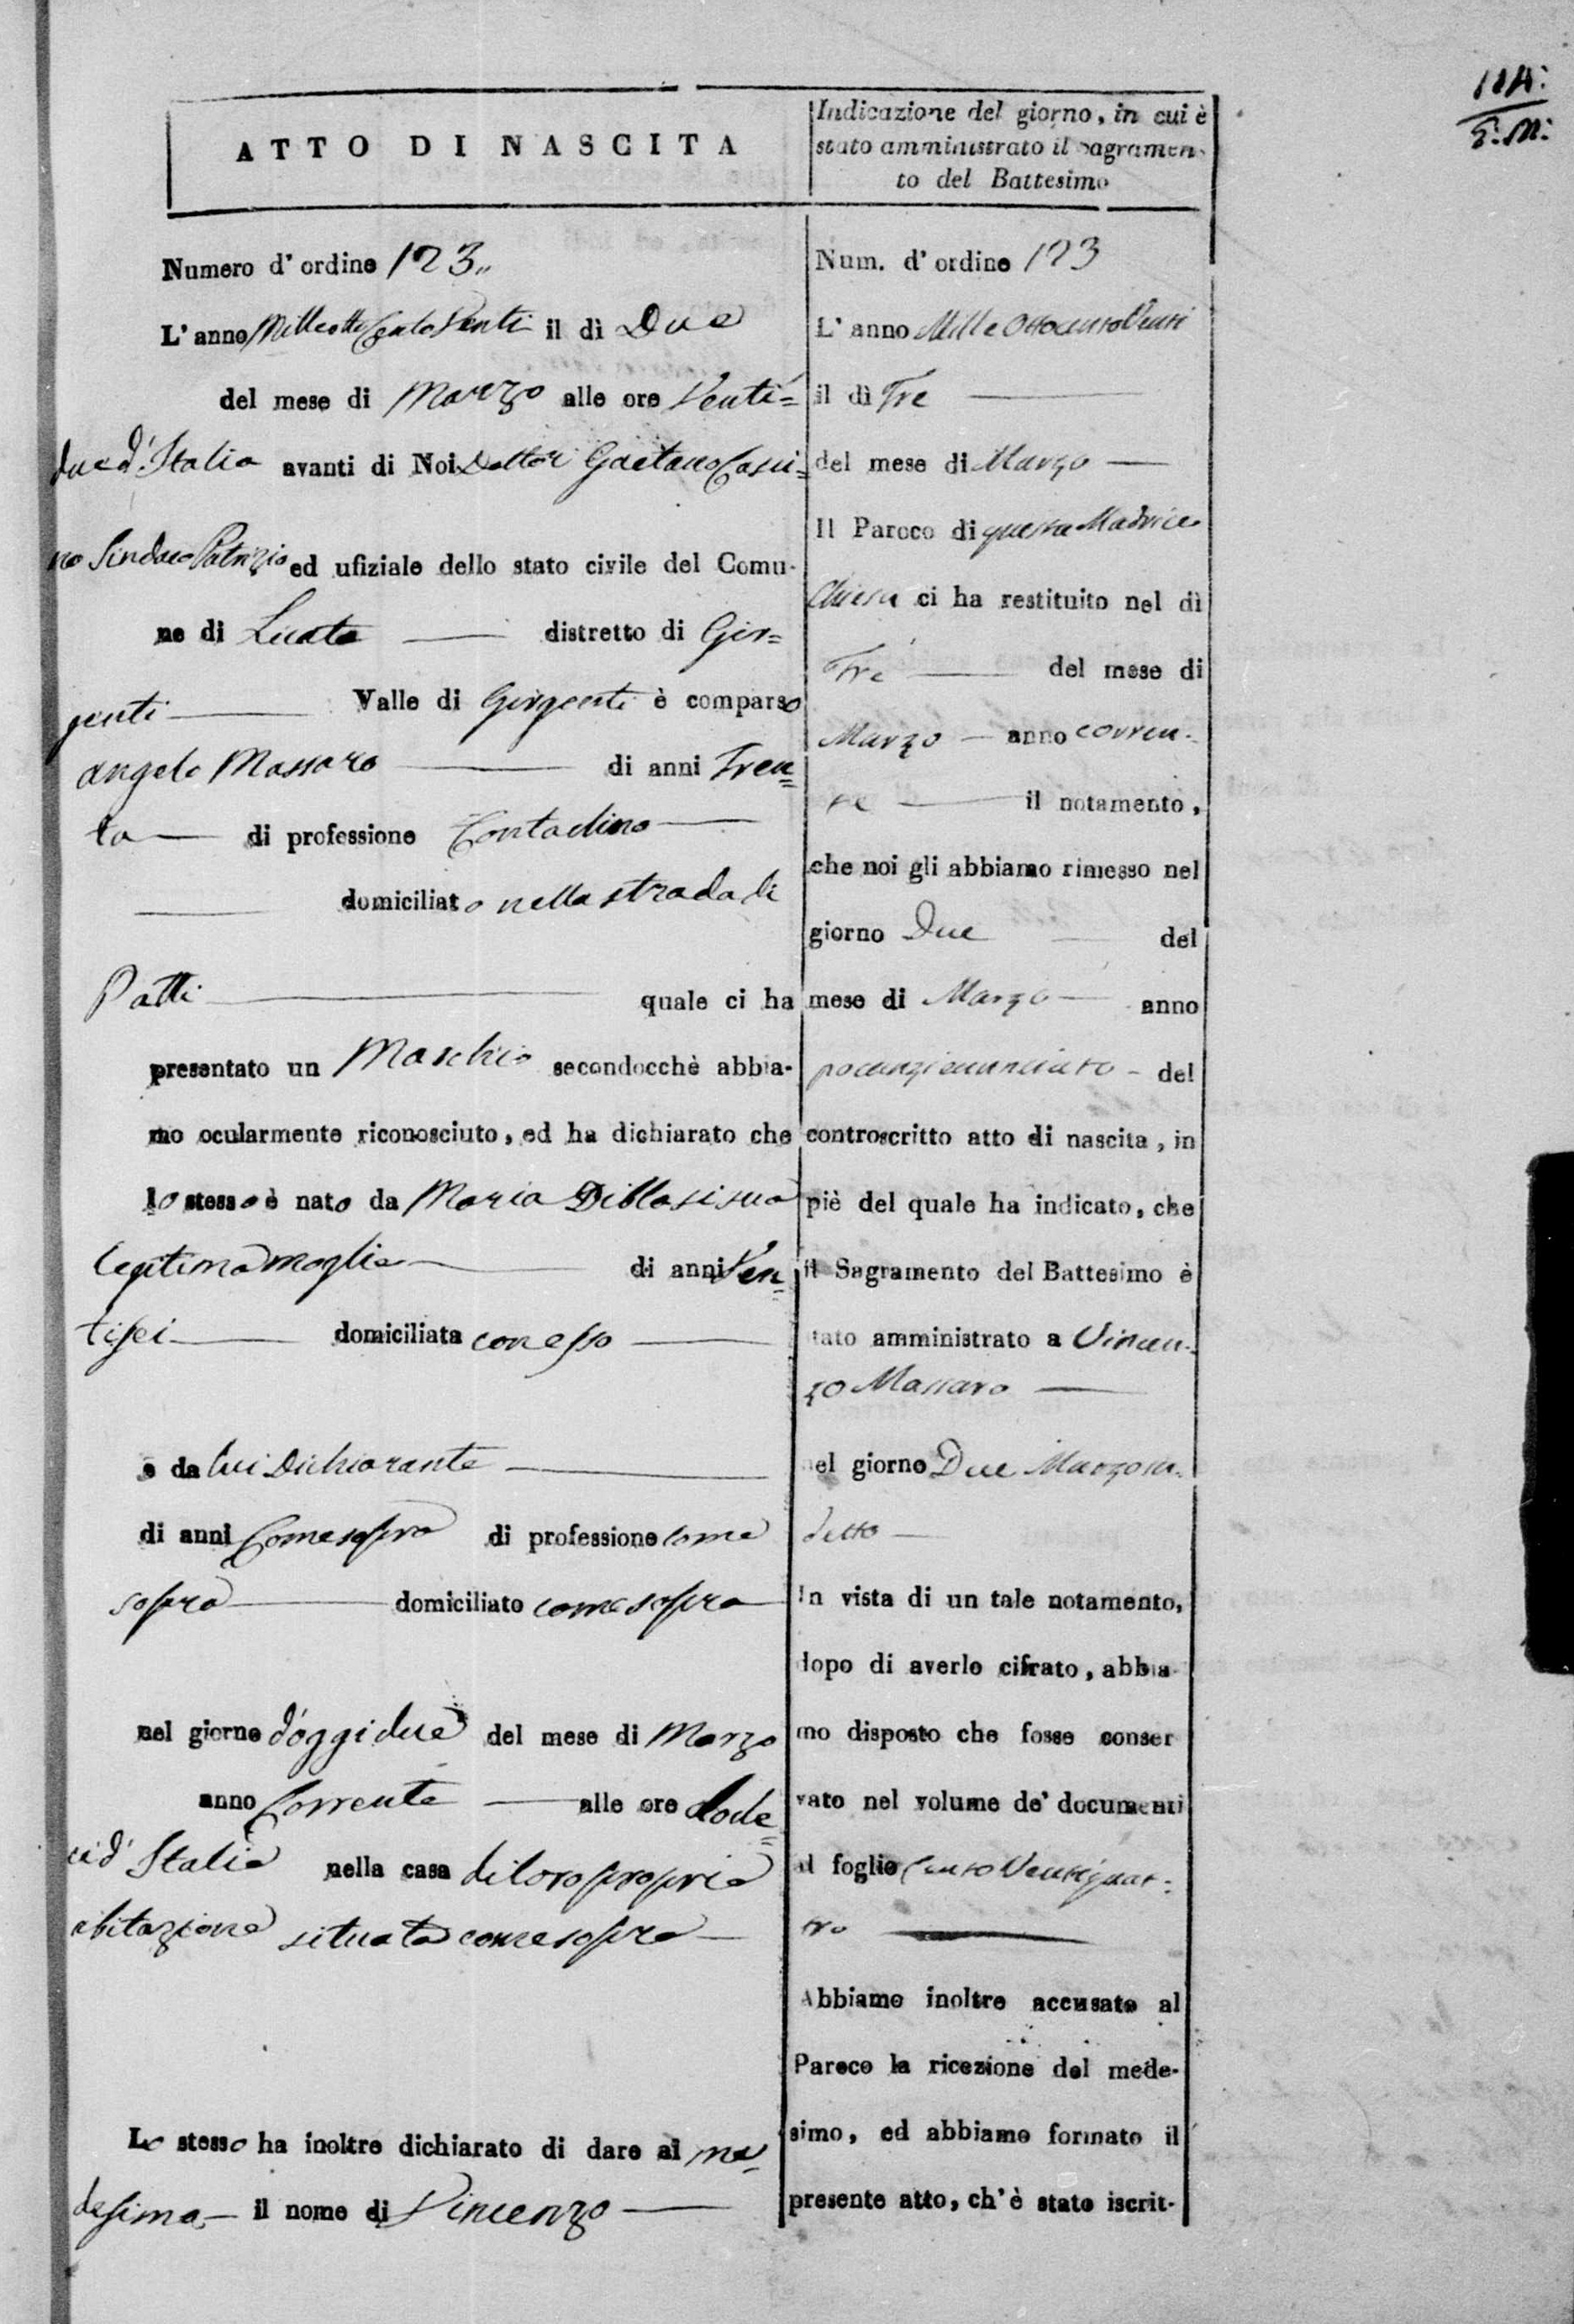 114:
ATTO DI NASCITA
Numero d' ordine 123„
L' anno Milleotto Cento Venti il dì Due
del mese di Marzo alle ore Venti=
due d'Italia avanti di Noi Dottor Gaetano Casci=
no Sindaco Patrizio ed ufiziale dello stato civile del Comu-
ne di Licata distretto di Gir=
genti Valle di Girgenti è comparso
Angelo Massaro di anni Tren=
ta di professione Contadino
domiciliato nella strada di
Patti quale ci ha
presentato un Maschio secondocchè abbia-
mo ocularmente riconosciuto, ed ha dichiarato che
lo stesso è nato da Maria Diblasi sua
legitima moglie di anni Ven=
tisei domiciliata con esso
e da lui Dichiarante
di anni Come sopra di professione come
sopra domiciliato come sopra
nel giorno d'oggi due del mese di Marzo
anno Corrente alle ore Dode=
ci d' Italia nella casa di loro propria
abitazione situata come sopra
Lo stesso ha inoltre dichiarato di dare al me=
desimo il nome di Vincenzo
Indicazione del giorno, in cui è
stato amministrato il sagramen-
to del Battesimo
Num. d' ordine 123
L' anno Mille Ottocento Venti
il dì Tre
del mese di Marzo
Il Paroco di questa Madrice
Chiesa ci ha restituito nel dì
Tre del mese di
Marzo anno corren-
te il notamento,
che noi gli abbiamo rimesso nel
giorno Due del
mese di Marzo anno
del
controscritto atto di nascita, in
piè del quale ha indicato, che
il Sagramento del Battesimo è
tato amministrato a Vincen-
zo Massaro
nel giorno Due Marzo su-
detto
In vista di un tale notamento,
dopo di averlo cifrato, abbia-
mo disposto che fosse conser
vato nel volume de' documenti
al foglio Cento Ventiquat-
tro
Abbiamo inoltre accusato al
Paroco la ricezione del mede-
simo, ed abbiamo formato il
presente atto, ch' è stato iscrit-